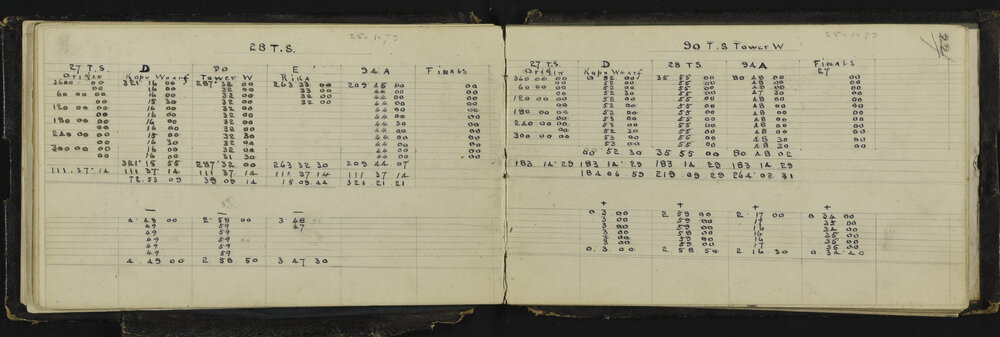 25.10.79
28 T.S.
27 T.S. D 90 E 94 A FINALS
Origin Kopu Wharf Tower W Rika
360 00 00 321 16 00 287 32 00 263 33 00 209 45 00 00
00 16 00 32 00 33 00 44 00 00
60 00 00 16 00 32 00 33 00 44 00 00
00 15 30 32 00 32 00 44 00 00
120 00 00 16 00 32 00 44 00 00
00 16 00 32 00 44 00 00
180 00 00 16 00 32 00 44 00 00
00 16 00 32 00 44 30 00
240 00 00 15 00 32 30 44 00 00
00 16 30 32 00 44 00 00
300 00 00 16 00 32 00 44 00 00
00 16 00 31 30 44 00 00
321 15 55 287 32 00 263 32 30 209 44 07
111. 37. 14 111 37 14 111 37 14 111 37 14 111 37 14
72. 53 09 39 09 14 15 09 44 321 21 21
— — —
4. 49 00 2. 58 00 3 48 00
49 59 47
49 59
49 59
49 59
49 59
4. 49 00 2. 58 50 3 47 30
25.10.79
22/
90 T.S Tower W
27 T.S. D 28 TS 94 A FINALS
Origin Kopu Wharf 27
360 00 00 0 52 00 35 55 00 80 48 00 00
00 52 00 55 00 48 00 00
60 00 00 52 00 55 00 48 00 00
00 52 30 55 00 47 30 00
120 00 00 52 00 55 00 48 00 00
00 52 00 55 00 48 00 00
180 00 00 53 00 55 00 48 00 00
00 53 00 55 00 48 00 00
240 00 00 53 00 55 00 48 00 00
00 52 30 55 00 48 00 00
300 00 00 53 00 55 00 48 30 00
00 53 00 55 00 48 00 00
0 52 30 35 55 00 80 48 02
183. 14. 29 183 14. 29 183 14 29 183 14 29
184 06 59 219 09 29 264. 02 31
+ + + +
0 3 00 2 59 00 2. 17 00 0 34 00
3 00 59 00 17 35 00
3 00 59 00 16 35 00
3 00 59 00 16 35 00
3 00 59 00 16 35 00
3 00 59 00 17 35 00
0. 3 00 2 58 50 2 16 30 0. 34. 40